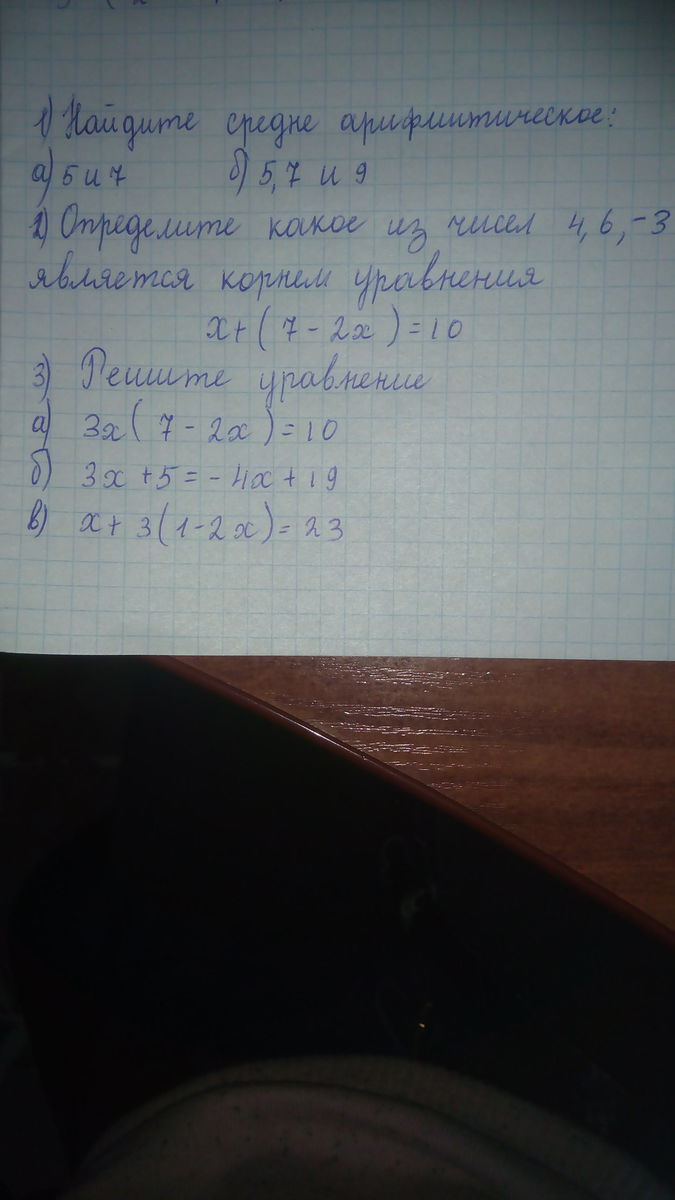 1) Найдите средне арифмитическое:
а) 5 и 7 б) 5, 7 и 9
2) Определите какое из чисел 4, 6, -3
является корнем уравнения
x + ( 7 - 2x ) = 10
3) Решите уравнение
а) 3x ( 7 - 2x ) = 10
б) 3x + 5 = - 4x + 19
в) x + 3 ( 1 - 2x ) = 23